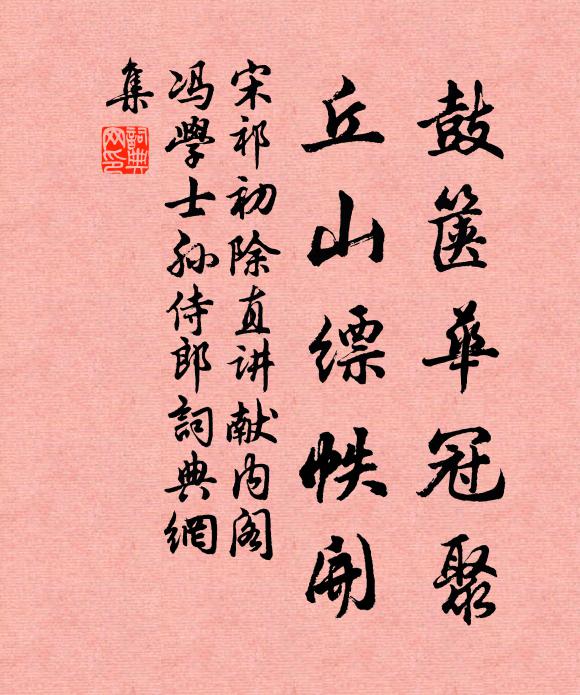 鼓箧華冠聚
丘山缥帙開
宋祁初除直讲献内阁
冯學士孙侍郎詞典網
集
詞典網印